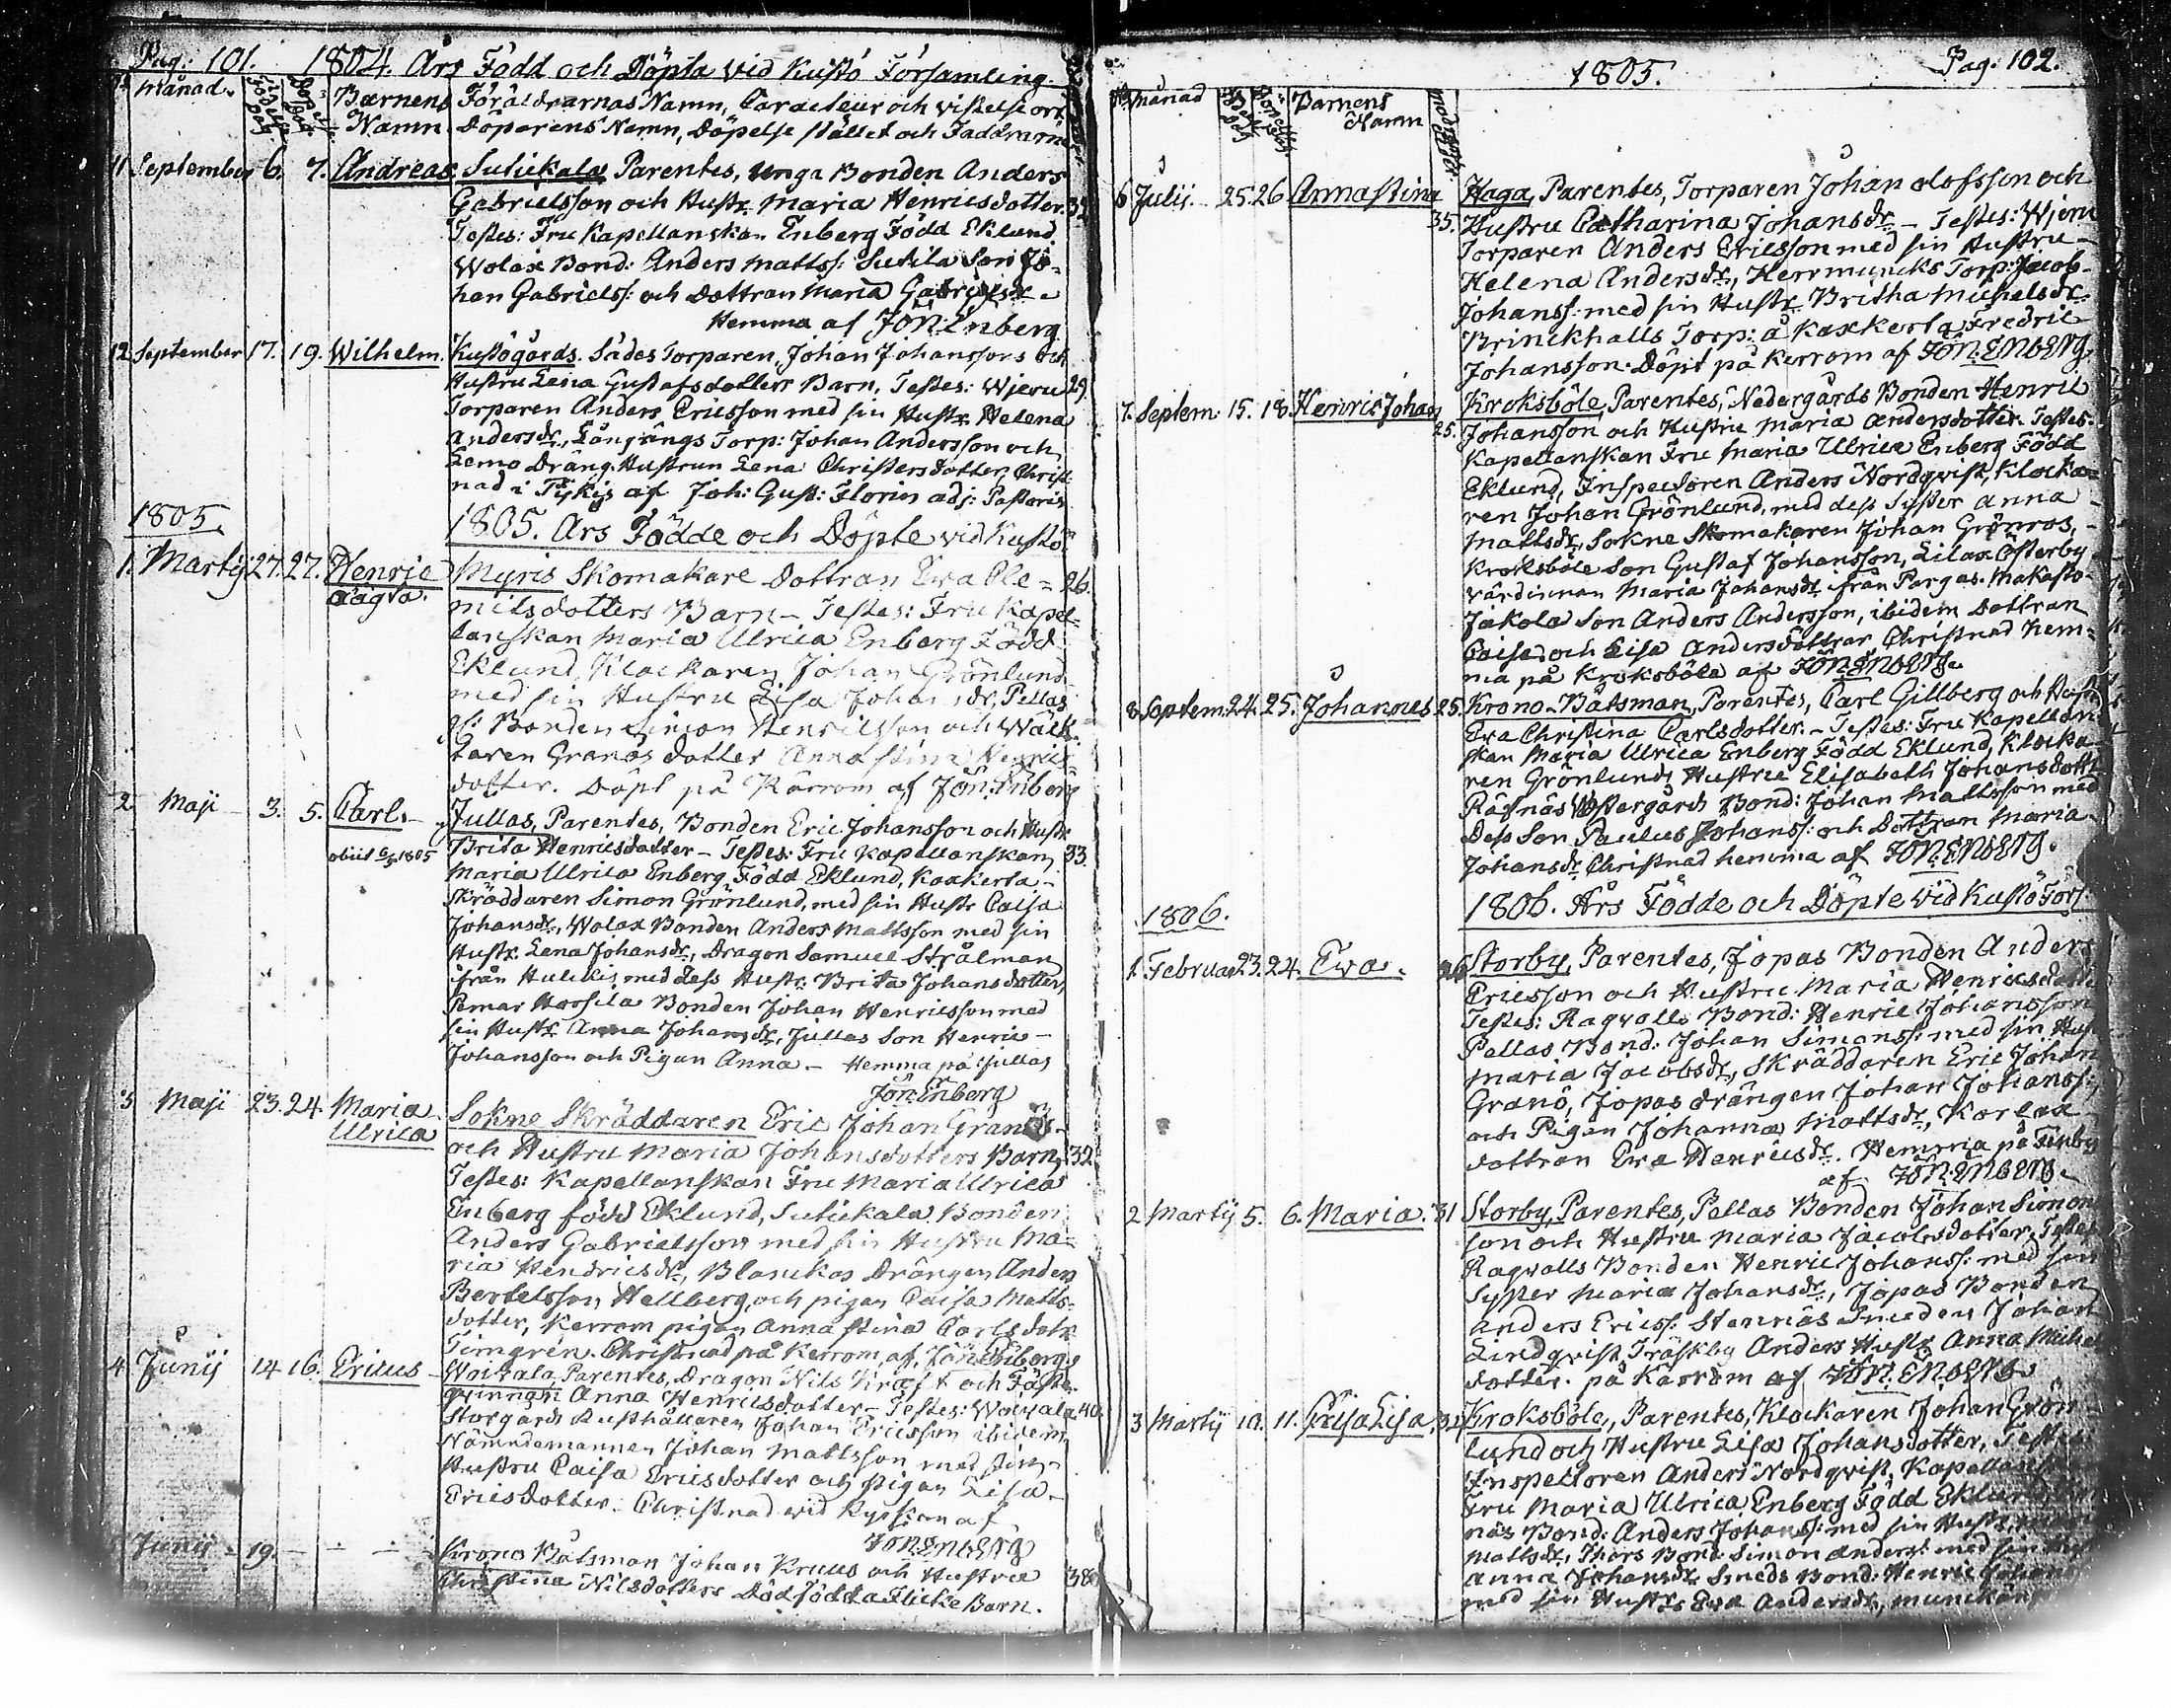 Pag: 101. 1804. Års Född och Döpta vid Kustö Församling.
Månad. Födelse Dag Döpelse Dag Barnens Namn Föräldrarnas Namn, Caracteur och vistelse ort
Döparens Namn, Döpelse stället och Faddrarne
11 September 6. 7. Andreas Sutickala Parentes, unga Bonden Anders
Gabrielsson och Hustr. Maria Henricsdotter.
Testes: Fru Kapellanskan Enberg Född Eklund
Wolax Bond: Anders Matts: Sutila Son Jo-
han Gabriels: och Dottran Maria Gabrielsdr.
Hemma af Jon: Enberg
12 September 17. 19. Wilhelm. Kustögårds. Sädes Torparen, Johan Johanssons och
Hustru Lena Gustafsdotters Barn, Testes: Wjeru 29.
Torparen Anders Ericsson med sin Hustr. Helena
Andersdr, Långängs Torp: Johan Andersson och
Lemo Dräng. Hustrun Lena Christersdotter, Christ-
nad i Pijkis af Joh: Gust: Florin adj: Pastoris
1805.
1805. Års Födde och Döpte vid Kustö
1. Martij 27. 27. Henric Myris Skomakare Dottran Ewa Cle= 26.
oägta. mitsdotters Barn – Testes: Fru Kapel=
lanskan Maria Ulrica Enberg Född
Eklund, Klockaren Johan Grönlund
med sin Hustru Lisa Johansdr, Pellas
gl: Bonden Simon Henricsson och Wäck-
taren Granös dotter Anna Stina Henrics
dotter. Döpt på Kärrom af Jon: Enberg
2 Maji 3. 5. Carl. Jullas, Parentes, Bonden Eric Johansson och Hustr
obiit 1805 Brita Henricsdotter – Testes: Fru Kapellanskan 33.
Maria Ulrica Enberg Född Eklund, Kaxkerta –
Skräddaren Simon Grönlund, med sin Hustr Caisa
Johansdr, Wolax Bonden Anders Mattsson med sin
Hustr. Lena Johansdr, Dragon Samuel Strålman
ifrån Hulckis med dess Hustr: Brita Johansdotter,
Pemar Harsila Bonden Johan Henricsson med
sin Hustr. Anna Johansdr, Jullas Son Henric –
Johansson och Pigan Anna. – Hemma på Jullas
Jon: Enberg
3 Maji 23. 24. Maria Sokne Skräddaren Eric Johan Granös
Ulrica och Hustru Maria Johansdotters Barn, 32
Testes: Kapellanskan Fru Maria Ulrica
Enberg född Eklund, Sutickala Bonden
Anders Gabrielsson med sin Hustru Ma-
ria Hendricsdr, Blanckas Drängen Anders
Bertelsson Hellberg, och pigan Caisa Matts-
dotter, Kerrom pigan Anna Stina Carlsdotr
Timgren. Christnad på Kerrom, af Jon Enberg
4 Junij 14 16. Ericus Woikala, Parentes, Dragon Nils Kraft och Fäste
qvinnan Anna Henricsdotter – Testes: Woikala 40.
Storgårds Rusthållaren Johan Ericsson ibidem
Nämndemannen Johan Mattsson med sin
Hustru Caisa Ericsdotter och Pigan Lisa
Ericsdotter. Christnad vid Kyrckan af
Jon Enberg
Junij – 19. – – – Krono Båtsman Johan Kruus och Hustru
Christina Nilsdotters Dödfödda Flicke Barn. 38
Pag. 102.
1805.
Månad Barnens Namn Modrens ålder
6 Julij. 25. 26 Anna Stina Haga, Parentes, Torparen Johan Olofsson och
35. Hustru Catharina Johansdr. – Testes: Wjeru
Torparen Anders Ericsson med sin Hustru –
Helena Andersdr, Herrmuncks Torp: Jacob-
Johanss: med sin Hustr. Britha Michelsdr.
Brinckhalls Torp: å Kaxkerta Fredric
Johansson. Döpt på Kerrom af Jon: Enberg
7. Septem: 15. 18. Henric Johan Kroksböle, Parentes, Nedergårds Bonden Henric
25. Johansson och Hustru Maria Andersdotter. Testes.
Kapellanskan Fru Maria Ulrica Enberg Född
Eklund, Inspectoren Anders Nordqvist, Klocka=
ren Johan Grönlund, med dess Syster Anna
Mattsdr, Sokne Skomakaren Johan Grönros,
Kroksböle Son Gustaf Johansson, Lilax Österby
Värdinnan Maria Johansdr ifrån Pargas. Makasto-
Jakola Son Anders Andersson, ibidem Dottran
Caisa och Lisa Andersdottrar Christnad hem-
ma på Kroksböle af Jon: Enberg
8 Septem 24. 25. Johannes 25. Krono-Båtsman, Parentes, Carl Gillberg och Hustr
Ewa Christina Carlsdotter. – Testes: Fru Kapellan-
skan Maria Ulrica Enberg Född Eklund, Klocka
ren Grönlunds Hustru Elisabeth Johansdott
Räfnäs Wästergårds Bond: Johan Mattsson med
Dess Son Paulus Johans: och Dottran Maria
Johansdr. Christnad hemma af Jon: Enberg.
1806.
1806. Års Födde och Döpte vid Kustö Förs:
1. Februar 23. 24. Ewa. Storby, Parentes, Jopas Bonden Anders
Ericsson och Hustru Maria Henricsdott
Testes: Ragvalls Bond: Henric Johansson
Pellas Bond: Johan Simonss: med sin Hus
Maria Jacobsdr, Skräddaren Eric Johan
Granö, Jopas drängen Johan Johanss:
och Pigan Johanna Mattsdr, Karlax
dottran Ewa Henricsdr. Hemma på Finby
af Jon: Enberg.
2 Martij 5. 6. Maria. 31 Storby, Parentes, Pellas Bonden Johan Simons
son och Hustru Maria Jacobsdotter, Testes
Ragvalls Bonden Henric Johanss: med sin
Syster Maria Johansdr, Jopas Bonden
Anders Ericss: Stennäs Smeden Johan
Lindqvist, Träskby Anders Hustr Anna Michel
dotter. på Kärrom af Jon: Enberg
3 Martij 10. 11. Caisa Lisa, Kroksböle, Parentes, Klockaren Johan Grön
lund och Hustru Lisa Johansdotter, Testes
Inspectoren Anders Nordqvist, Kapellans
Fru Maria Ulrica Enberg Född Eklund
näs Bond: Anders Johanss: med sin Hustr.
Mattsdr, Thors Bond: Simon Anderss: med sin
Anna Johansdr Smeds Bond: Henric Johan
med sin Hustr: Ewa Andersdr,